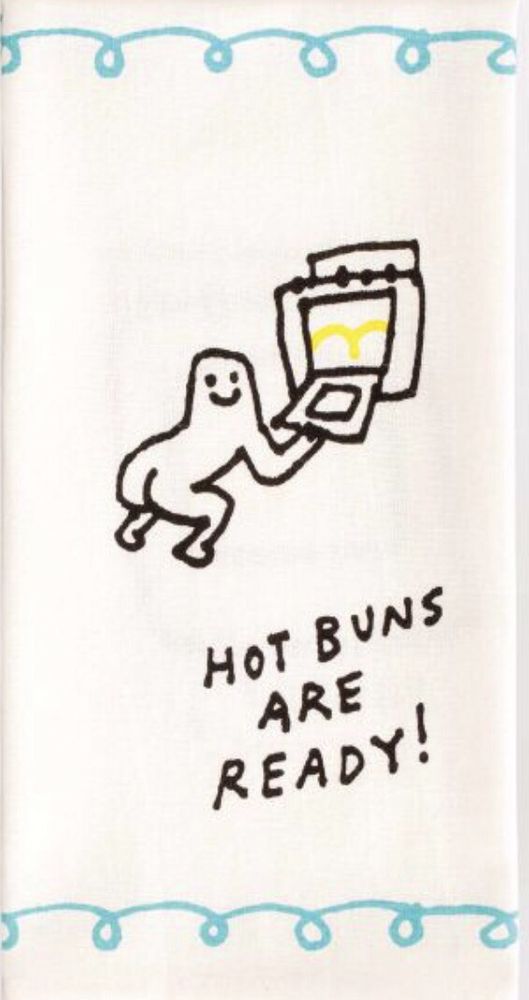 HOT BUNS
ARE
READY!